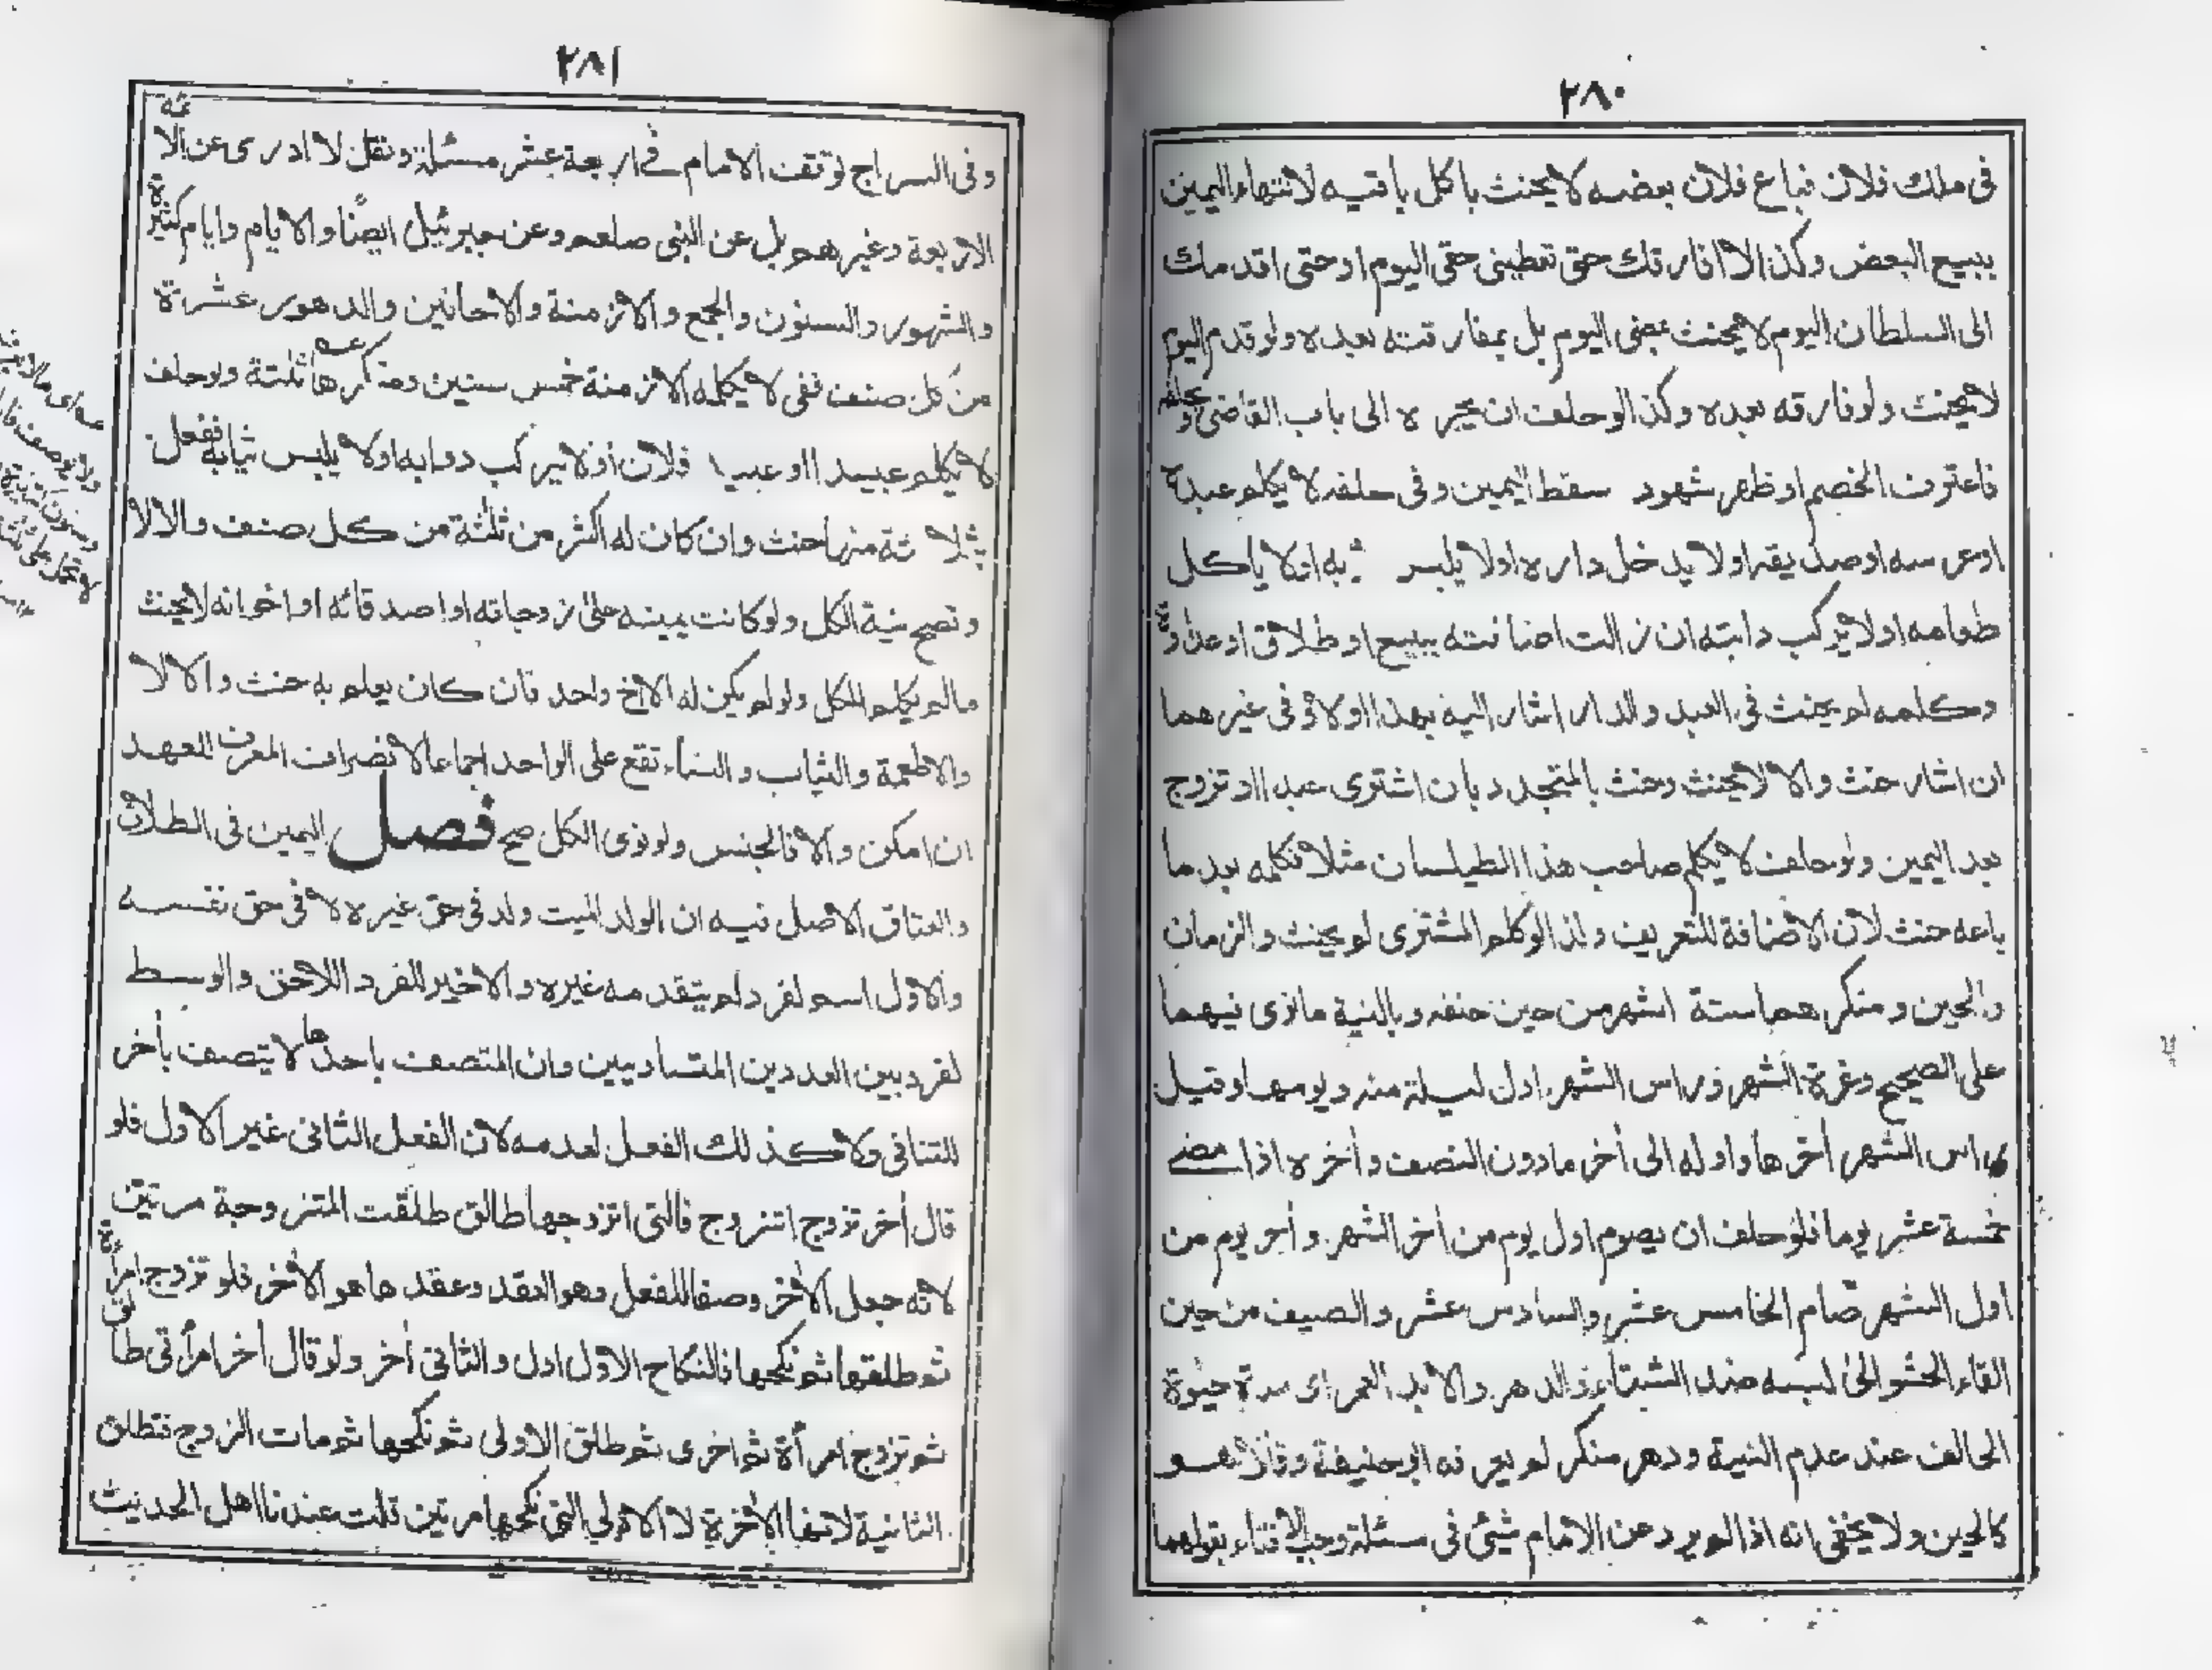 ٢٨٠
فى ملك فلان فباع فلان بعضه لا يحنث باكل باقيه لانتهاء اليمين
ببيع البعض وكذا لا افارقك حتى تعطينى حقى اليوم او حتى اقدمك
الى السلطان اليوم لا يحنث بمضى اليوم بل بمفارقته بعده ولو قدم اليوم
لا يحنث ولو فارقه بعده وكذا لو حلف ان يجره الى باب القاضى ويحلفه
فاعترف الخصم او ظهر شهود سقط اليمين وفى حلفه لا يكلم عبده
او عرسه او صديقه او لا يدخل داره او لا يلبس ثوبه او لا ياكل
طعامه او لا يركب دابته ان زالت اضافته ببيع او طلاق او عداوة
وكلمه لم يحنث فى العبد والدار اشار اليه بهذا او لا وفى غيرهما
ان اشار حنث والا لا يحنث وحنث بالمتجدد بان اشترى عبدا او تزوج
بعد اليمين ولو حلف لا يكلم صاحب هذا الطيلسان مثلا فكلمه بعد ما
باعه حنث لان الاضافة للتعريف ولذا لو كلم المشترى لم يحنث والزمان
والحين ومنكرهما ستة اشهر من حين حلفه وبالنية ما نوى فيهما
على الصحيح وغرة الشهر وراس الشهر اول ليلة منه ويومها وقيل
راس الشهر أخرها واوله الى أخر مادون النصف وأخره اذا مضے
خمسة عشر يوما فلو حلف ان يصوم اول يوم من أخر الشهر وأخر يوم من
اول الشهر صام الخامس عشر والسادس عشر والصيف من حين
القاء الحشو الى لبسه ضد الشتاء والدهر والابد العمر اى مدة حيوة
الحالف عند عدم النية ودهر منكر لم يعرفه ابو حنيفة وقالا هو
كالحين ولا يخفى انه اذا لم يرد عن الامام شئ فى مسئلة وجب الافتاء بقولهما
٢٨١
وفى السراج توقف الامام فى اربعة عشر مسئلة ونقل لا ادرى عن الائمة
الاربعة وغيرهم بل عن النبى صلعم وعن جبرئيل ايضًا والايام وايام كثيرة
والشهور والسنون والجمع والازمنة والاحايين والدهور عشرة
من كل صنف ففى لا يكلمه الازمنة خمس سنين ومنكرها ثلثة ولو حلف
لا يكلم عبيدا او عبيد فلان او لا يركب دوابه او لا يلبس ثيابه ففعل
بثلاثة منها حنث وان كان له اكثر من ثلثة من كل صنف والا لا
وتصح نية الكل ولو كانت يمينه على زوجاته او اصدقائه او اخوانه لا يحنث
مالم يكلم الكل ولو لم يكن له الا اخ واحد فان كان يعلم به حنث والا لا
والاطعمة والثياب والنساء تقع على الواحد اجماعا لانصراف المعرف للعهد
ان امكن والا فالجنس ولو نوى الكل صح فصل اليمين فى الطلاق
والعتاق الاصل فيه ان الولد الميت ولد فى حق غيره لا فى حق نفسه
والاول اسم لفرد لم يتقدمه غيره والاخير للفرد اللاحق والوسط
لفرد بين العددين المتساويين وان المتصف باحدها لا يتصف بأخر
للتنافى ولا كذلك الفعل لعدمه لان الفعل الثانى غير الاول فلو
قال أخر تزوج اتزوج فالتى اتزوجها طالق طلقت المتزوجة مرتين
لانه جعل الأخر وصفا للفعل وهو العقد وعقدها هو الأخر فلو تزوج امرأة
ثم طلقها ثم نكحها فالنكاح الاول اول والثانى أخر ولو قال أخر امرأتى طالق
ثم تزوج امرأة ثم اخرى ثم طلق الاولى ثم نكحها ثم مات الزوج تطلق
الثانية لانها الأخرة لا الاولى التى نكحها مرتين قلت عندنا اهل الحديث